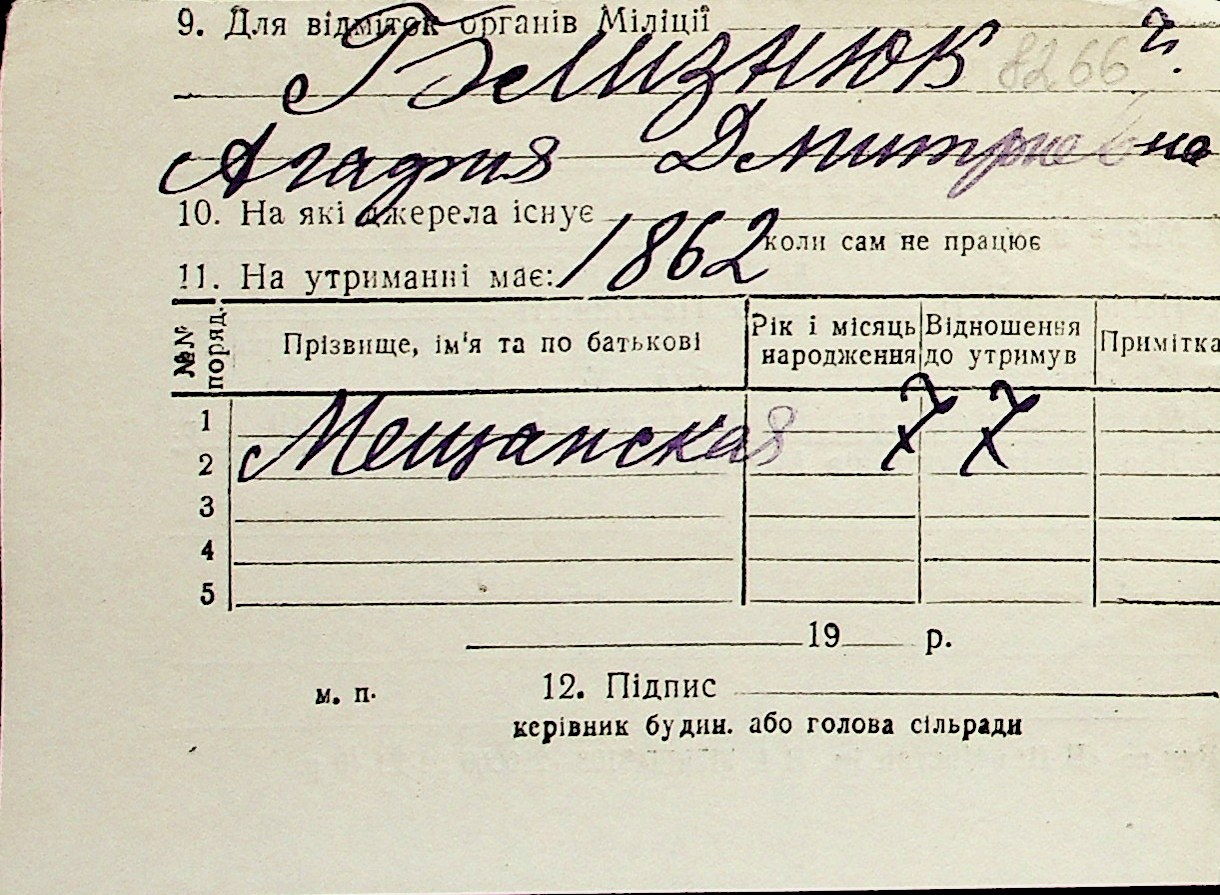 9. Для відміток органів Міліції
Близнюк 8266
Агафия Дмитриевна
10. На які джерела існує
1862 коли сам не працює
11. На утриманні має:
№№ поряд. Прізвище, ім'я та по батькові Рік і місяць народження Відношення до утримув Примітка
1
Мещанская
2
3
4
5
19 р.
м. п. 12. Підпис
керівник будин. або голова сільради